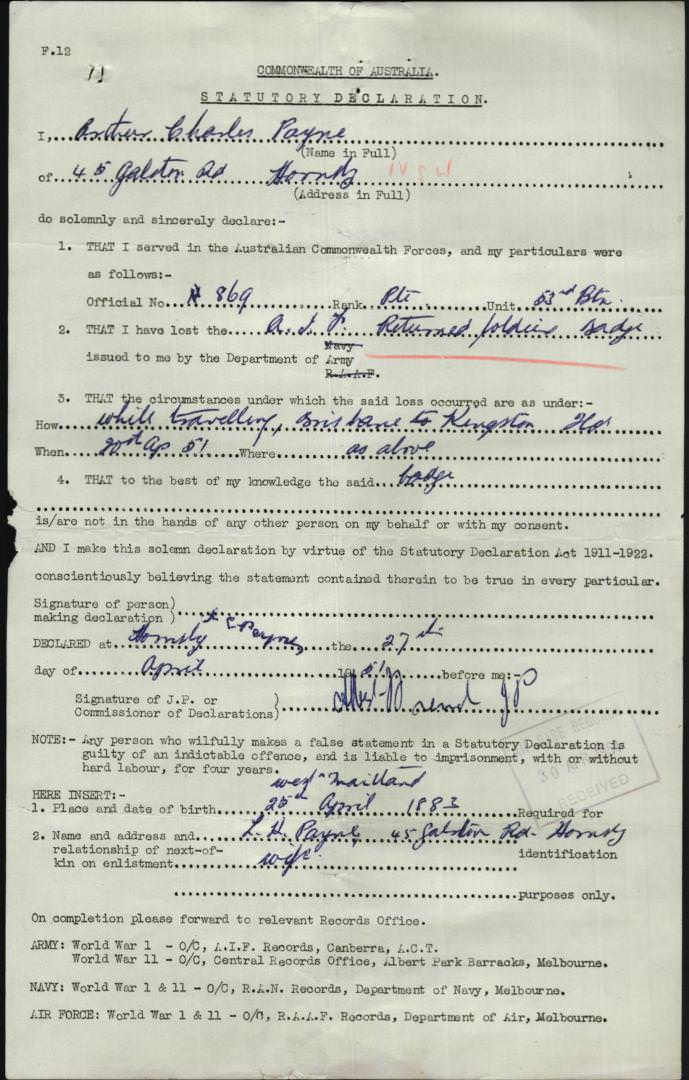 F.12
71
COMMONWEALTH OF AUSTRALIA.
STATUTORY DECLARATION.
I, Arthur Charles Payne
(Name in Full)
of 45 Galston Rd Hornsby NSW
(Address in Full)
do solemnly and sincerely declare:-
1. THAT I served in the Australian Commonwealth Forces, and my particulars were
as follows:-
Official No. 869 Rank Pte Unit 53rd Btn.
2. THAT I have lost the A.I.F. Returned soldiers badge
Navy
issued to me by the Department of Army
R.A.A.F.
3. THAT the circumstances under which the said loss occurred are as under:-
How while travelling, Brisbane to Kingston
When 20th Ap 51 Where as above
4. THAT to the best of my knowledge the said badge
is/are not in the hands of any other person on my behalf or with my consent.
AND I make this solemn declaration by virtue of the Statutory Declaration Act 1911-1922.
conscientiously believing the statement contained therein to be true in every particular.
Signature of person)
making declaration ) A C Payne
DECLARED at Hornsby the 27th
day of April 1951 before me:-
Signature of J.P. or
Commissioner of Declarations) JP
NOTE:- Any person who wilfully makes a false statement in a Statutory Declaration is
guilty of an indictable offence, and is liable to imprisonment, with or without
hard labour, for four years.
30 APR
RECEIVED
HERE INSERT:- West Maitland
1. Place and date of birth 25th April 1883 Required for
2. Name and address and L. H. Payne, 45 Galston Rd. Hornsby
relationship of next-of- identification
kin on enlistment wife
purposes only.
On completion please forward to relevant Records Office.
ARMY: World War 1 - O/C, A.I.F. Records, Canberra, A.C.T.
World War 11 - O/C, Central Records Office, Albert Park Barracks, Melbourne.
NAVY: World War 1 & 11 - O/C, R.A.N. Records, Department of Navy, Melbourne.
AIR FORCE: World War 1 & 11 - O/C, R.A.A.F. Records, Department of Air, Melbourne.